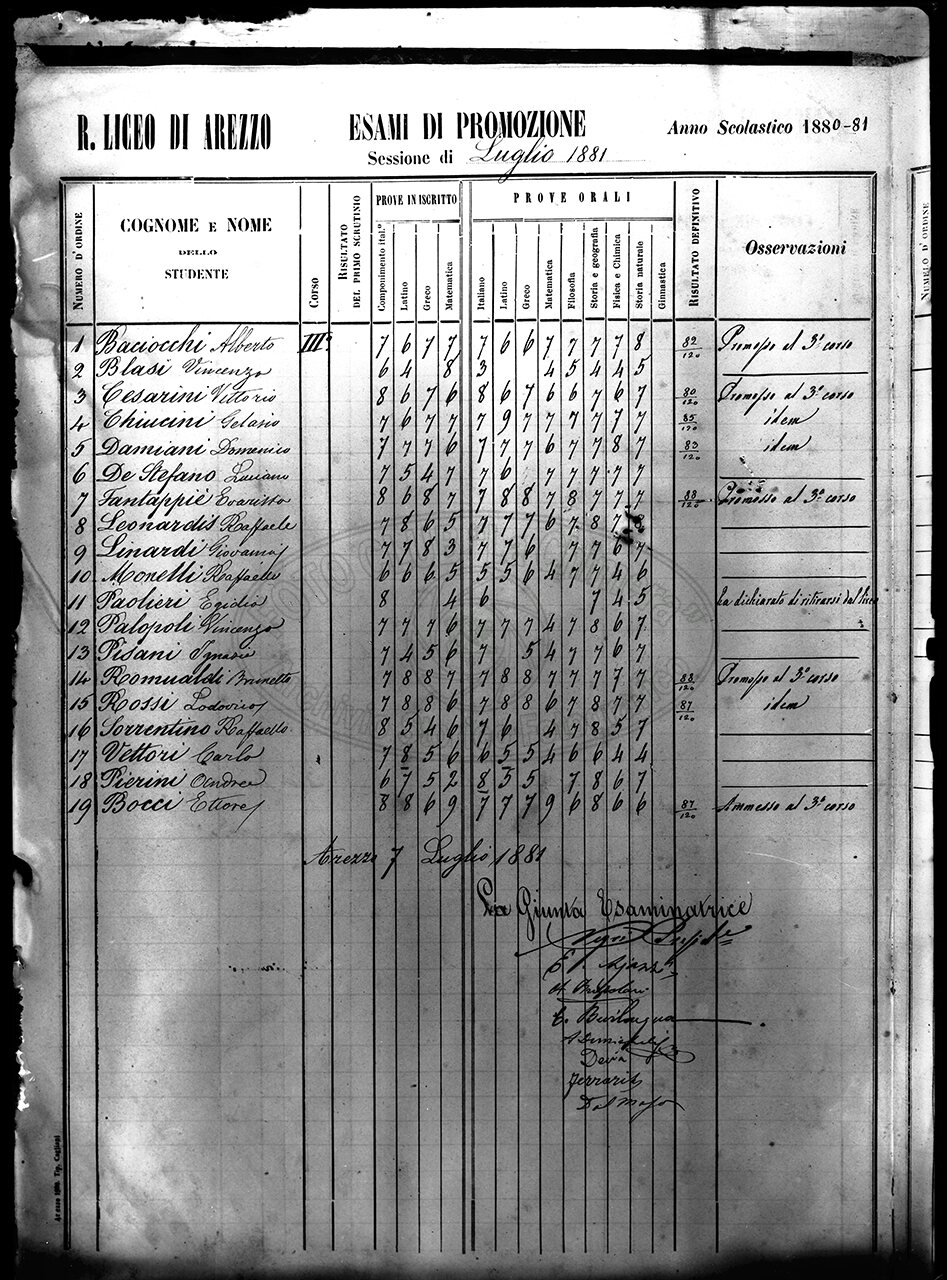 R. LICEO DI AREZZO ESAMI DI PROMOZIONE Anno Scolastico 1880-81
Sessione di Luglio 1881
NUMERO D'ORDINE COGNOME E NOME DELLO STUDENTE Corso RISULTATO DEL PRIMO SCRUTINIO PROVE IN ISCRITTO PROVE ORALI RISULTATO DEFINITIVO Osservazioni
Componimento ital.º Latino Greco Matematica Italiano Latino Greco Matematica Filosofia Storia e geografia Fisica e Chimica Storia naturale Ginnastica
1 Baciocchi Alberto III 7 6 7 7 7 6 6 7 7 7 7 8 82/120 Promosso al 3º corso
2 Blasi Vincenzo 6 4 8 3 4 5 4 4 5
3 Cesarini Vittorio 8 6 7 6 8 6 7 6 6 7 6 7 80/120 Promosso al 3º corso
4 Chiucini Gelasio 7 6 7 7 7 9 7 7 7 7 7 7 85/120 idem
5 Damiani Domenico 7 7 7 6 7 7 7 6 7 7 8 7 83/120 idem
6 De Stefano Luciano 7 5 4 7 7 6 7 7 7 7 7
7 Fantappiè Evaristo 8 6 8 7 7 8 8 7 8 7 7 7 88/120 Promosso al 3º corso
8 Leonardis Raffaele 7 8 6 5 7 7 7 6 7 8 7 8
9 Linardi Giovanni 7 7 8 3 7 7 6 7 7 6 7
10 Monelli Raffaello 6 6 6 5 5 5 6 4 7 7 4 6
11 Paolieri Egidio 8 4 6 7 4 5 ha dichiarato di ritirarsi dal liceo
12 Palopoli Vincenzo 7 7 7 6 7 7 7 4 7 8 6 7
13 Pisani Ignazio 7 4 5 6 7 5 4 7 7 6 7
14 Romualdi Brunetto 7 8 8 7 7 8 8 7 7 7 7 7 88/120 Promosso al 3º corso
15 Rossi Lodovico 7 8 8 6 7 8 8 6 7 8 7 7 87/120 idem
16 Sorrentino Raffaello 8 5 4 6 7 6 4 7 8 5 7
17 Vettori Carlo 7 8 5 6 6 5 5 4 6 6 4 4
18 Pierini Andrea 6 7 5 2 8 5 5 7 8 6 7
19 Bocci Ettore 8 8 6 9 7 7 7 9 6 8 6 6 87/120 Ammesso al 3º corso
Arezzo 7 Luglio 1881
La Giunta Esaminatrice
Deva
Ferraris
Dal Maso
NUMERO D'ORDINE